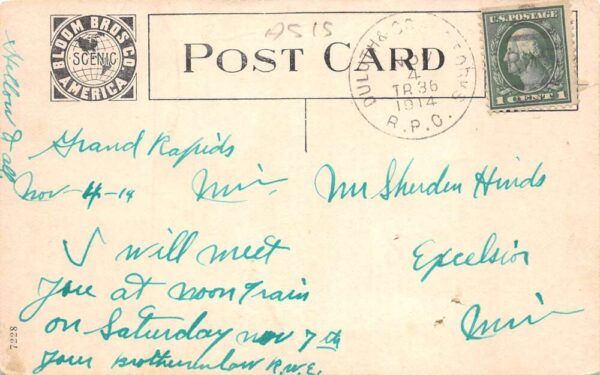 BLOOM BROS CO
SCENIC
AMERICA
POST CARD
DULUTH &
NOV
4
TR 36
1914
R.P.O.
U.S. POSTAGE
1 CENT 1
Grand Rapids
Nov-4-14 Min
I will meet
you at noon Train
on Saturday nov 7th
your brotherinlaw R.W.E.
Mr Sherden Hinds
Excelsior
Minn
7228